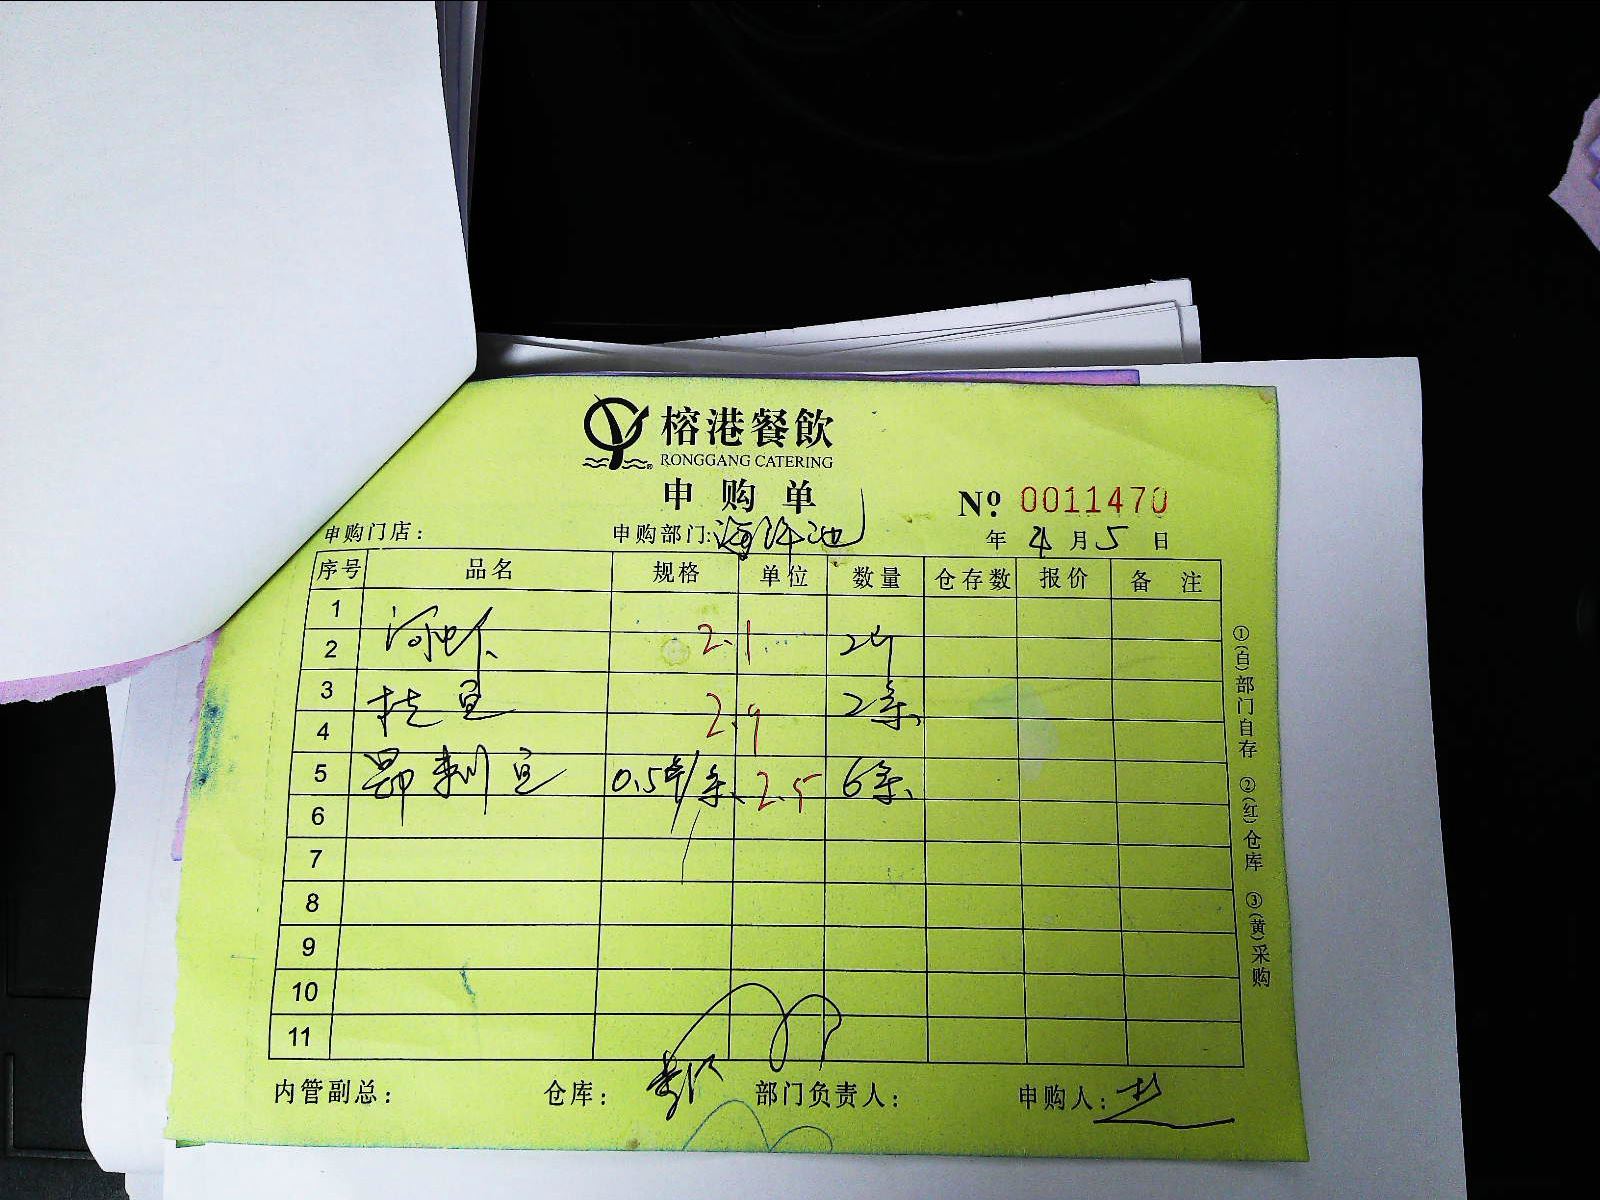 榕港餐飲
RONGGANG CATERING
申购单
Nº 0011470
申购门店： 申购部门：海鲜池 年 4 月 5 日
序号 品名 规格 单位 数量 仓存数 报价 备 注
1
2 河虾 2.1 2斤
3 桂鱼 2.9 2条
4
5 鄂刺鱼 0.5斤/条 2.5 6条
6
7
8
9
10
11
内管副总： 仓库： 部门负责人： 申购人：
①(白)部门自存 ②(红)仓库 ③(黄)采购